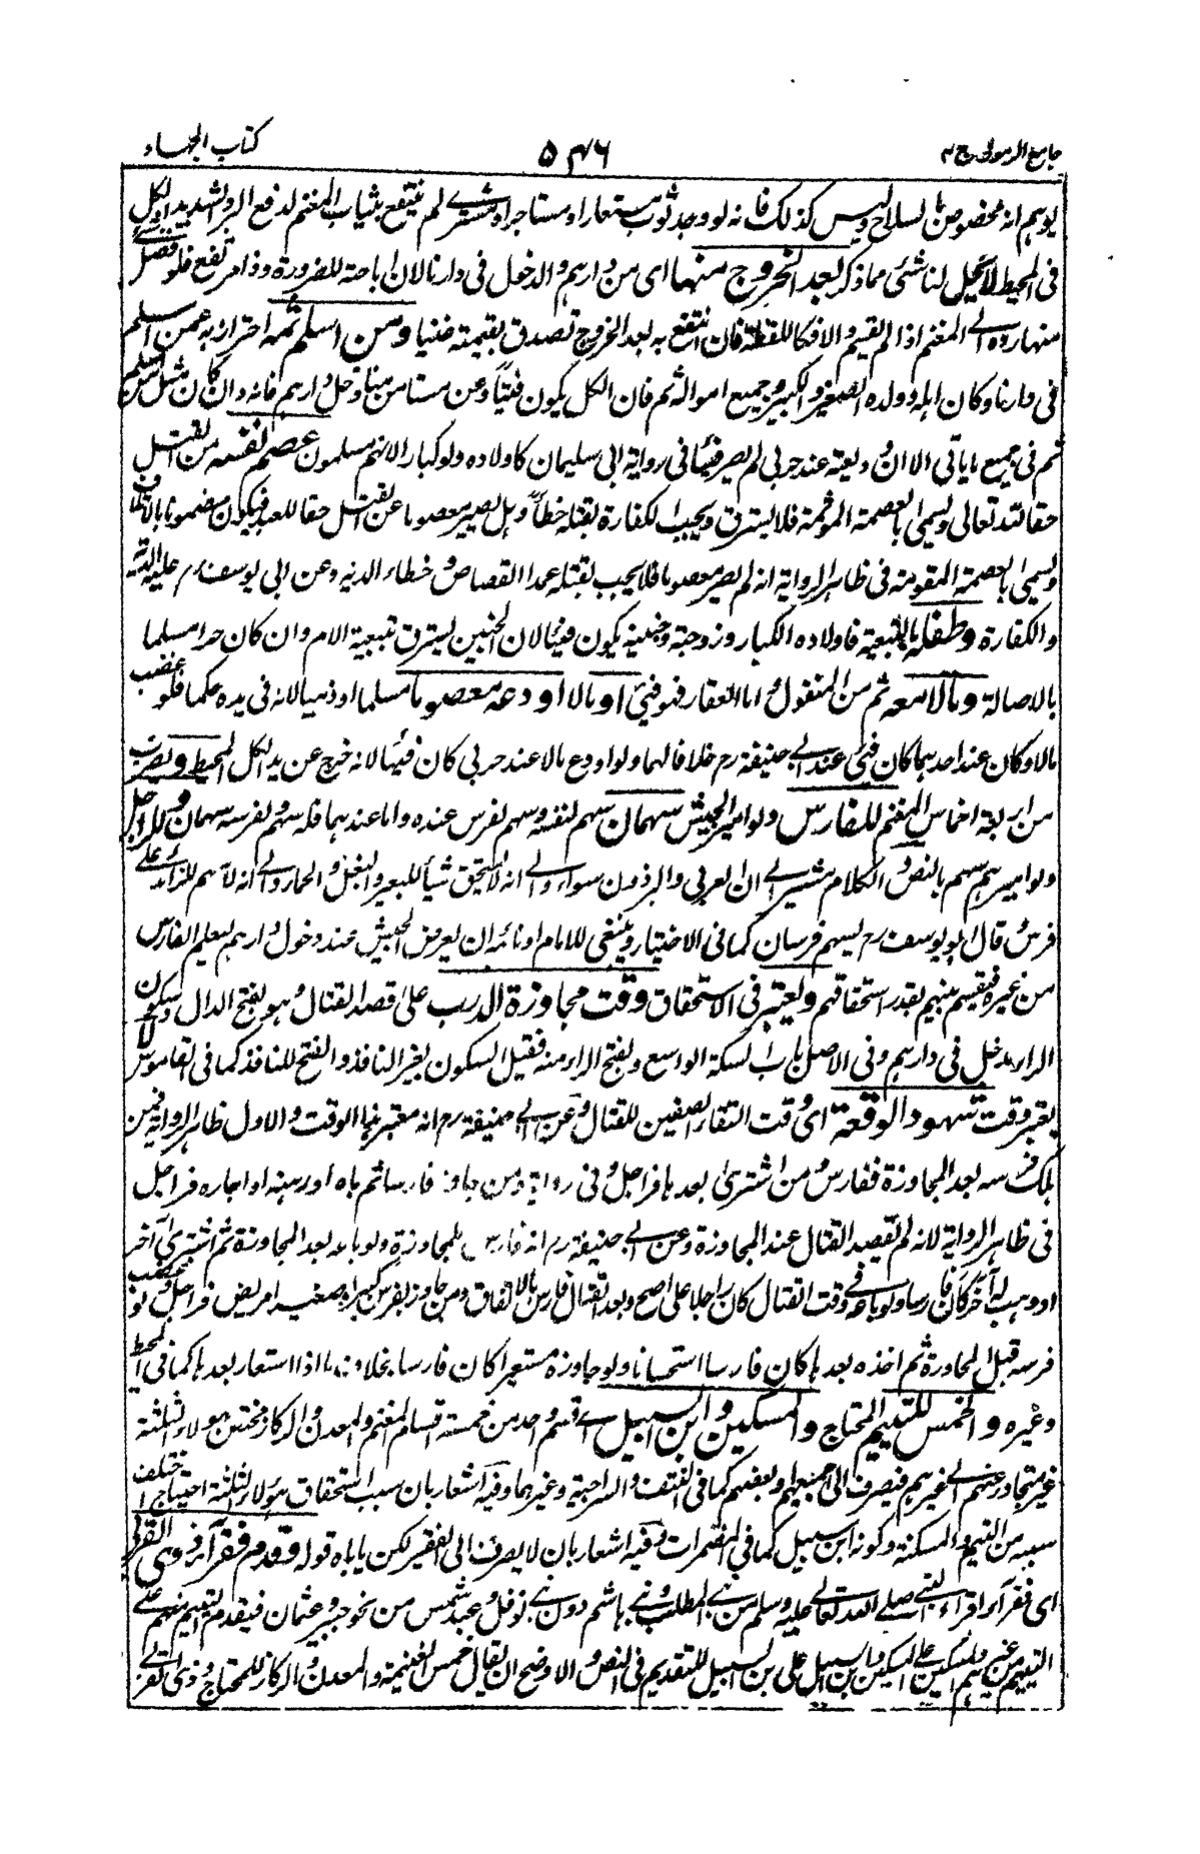 جامع الرموز ج ٢ ٥٤٦ كتاب الجهاد
يوهم انه مخصوص بالسلاح وليس كذلك فانه لو وجد ثوب مستعار او مستاجر او مشترى لم ينتفع بثياب المغنم لدفع البرد الشديد او الكل
فى المحيط لا يحل لنا شئ مما ذكر بعد الخروج منها اى من دارهم والدخول فى دارنا لان اباحته للضرورة وذا مرتفع فلو فضل شئ
منها رده الى المغنم اذا لم يقسم والا فكاللقطة فان انتفع به بعد الخروج تصدق بقيمته غنيا ومن اسلم ثمه احترازا به عمن اسلم
فى دارنا وكان اهله وولده الصغير والكبير وجميع امواله ثم فان الكل يكون فيئا وعن مستامن منا دخل دارهم فانه وان كان مثل من اسلم
ثم فى جميع ما ياتى الا ان وديعته عند حربى لم يصر فيئا فى رواية ابى سليمان كاولاده ولو كبارا لانهم مسلمون عصم نفسه من القتل
حقا لله تعالى ويسمى بالعصمة المؤثمة فلا يسترق ويجب الكفارة بقتله خطأ وهل يصير معصوما عن القتل حقا للعبد فيكون مضمونا بالاتلاف
ويسمى بالعصمة المقومة ففى ظاهر الرواية انه لم يصر معصوما فلا يجب بقتله عمدا القصاص وخطاء الدية وعن ابى يوسف رح عليه الدية
والكفارة وطفله بالتبعية فاولاده الكبار وزوجته وجنينه يكون فيئا لان الجنين يسترق بتبعية الام وان كان حرا مسلما
بالاصالة ومالا معه ثم من المنقول اما العقار فهو فيئ او مالا اودعه معصوما مسلما او ذميا لانه فى يده حكما فلو غصب
مالا وكان عند احدهما كان فيئ عند ابى حنيفة رح خلافا لهما ولو اودع مالا عند حربى كان فيئا لانه خرج عن يده الكل المحيط ويصرف
من اربعة اخماس المغنم للفارس ولو امير الجيش سهمان سهم لنفسه وسهم لفرس عنده واما عندهما فله سهم ولفرسه سهمان وللراجل
ولو اميرهم سهم بالنص والكلام مشير الى ان العربى والبرذون سواء والى انه لا يستحق شيأ للبعير والبغل والحمار والى انه لا سهم للزائد على
فرس قال ابو يوسف رح يسهم فرسان كما فى الاختيار وينبغى للامام او نائبه ان يعرض الجيش عند دخول دارهم ليعلم الفارس
من غيره فيقسم بينهم بقدر استحقاقهم ويعتبر فى الاستحقاق وقت مجاوزة الدرب على قصد القتال وهو بفتح الدال وسكون
الراء مدخل فى دارهم وفى الاصل باب السكة الواسع وبفتح الراء منه فقيل السكون بغير النافذ والفتح للنافذ كما فى القاموس لا
يعتبر وقت شهود الوقعة اى وقت التقاء الصفين للقتال وعن ابى حنيفة رح انه معتبر بهذا الوقت والاول ظاهر الرواية فمن
هلك فرسه بعد المجاوزة ففارس ومن اشترى بعدها فراجل وفى رواية ومن جاوز فارسا ثم باعه او رهنه او اجاره فراجل
فى ظاهر الرواية لانه لم يقصد القتال عند المجاوزة وعن ابى حنيفة رح انه فارس للمجاوزة ولو باعه بعد المجاوزة ثم اشترى آخر
او وهب له آخر كان فارسا ولو باعه فى وقت القتال كان راجلا على الاصح وبعد القتال فارس بالاتفاق ومن جاوز بفرس كبير او صغير او مريض فراجل ولو غصب
فرسه قبل المجاوزة ثم اخذه بعدها كان فارسا استحسانا ولو جاوزه مستعيرا كان فارسا بخلاف ما اذا استعار بعدها كما فى المحيط
وغيره والخمس لليتيم المحتاج والمسكين وابن السبيل اى قسم واحد من خمسة اقسام المغنم والمعدن والركاز مختص بهولاء الثلثة
غير متجاوز عنهم الى غيرهم فيصرف الى جميعهم او بعضهم كما فى النتف والسراجية وغيرهما وفيه اشعار بان سبب استحقاق هؤلاء الثلثة احتياج اختلف
سببه من اليتيم والمسكنة وكونه ابن سبيل كما فى المضمرات وفيه اشعار بان لا يصرف الى الفقير لكن ياباه قوله وقدم فقراء ذوى القربى
اى فقراء اقرباء النبى صلى الله تعالى عليه وسلم من بنى المطلب وبنى هاشم دون بنى نوفل وعبد شمس من نحو جبير وعثمان فيقدم اليتيم منهم على
اليتيم من غيرهم والمسكين على المسكين وابن السبيل على ابن السبيل للتقديم فى النص والاوضح ان يقال خمس الغنيمة والمعدن والركاز للمحتاج وذى القربى